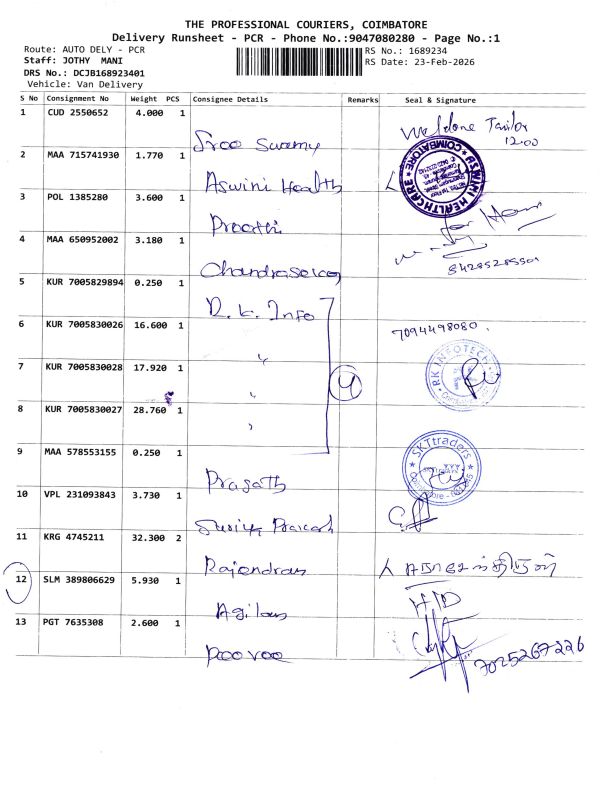 THE PROFESSIONAL COURIERS, COIMBATORE
Delivery Runsheet - PCR - Phone No.:9047080280 - Page No.:1
Route: AUTO DELY - PCR
RS No.: 1689234
Staff: JOTHY MANI
RS Date: 23-Feb-2026
DRS No.: DCJB168923401
Vehicle: Van Delivery
S No Consignment No Weight PCS Consignee Details Remarks Seal & Signature
1 CUD 2550652 4.000 1
Sree Swamy
Tailor
12.00
2 MAA 715741930 1.770 1
Aswini Health
ASWINI HEALTHCARE COIMBATORE
3 POL 1385280 3.600 1
Preethi
4 MAA 650952002 3.180 1
Chandrasekar
5 KUR 7005829894 0.250 1
R.K. Info
6 KUR 7005830026 16.600 1
"
7094498080.
7 KUR 7005830028 17.920 1
"
4
RK INFOTECH
8 KUR 7005830027 28.760 1
"
9 MAA 578553155 0.250 1
Prasath
SKTtraders
10 VPL 231093843 3.730 1
Suriya Prakash
11 KRG 4745211 32.300 2
Rajendran
12 SLM 389806629 5.930 1
Agilan
13 PGT 7635308 2.600 1
Poovoo
7025267226